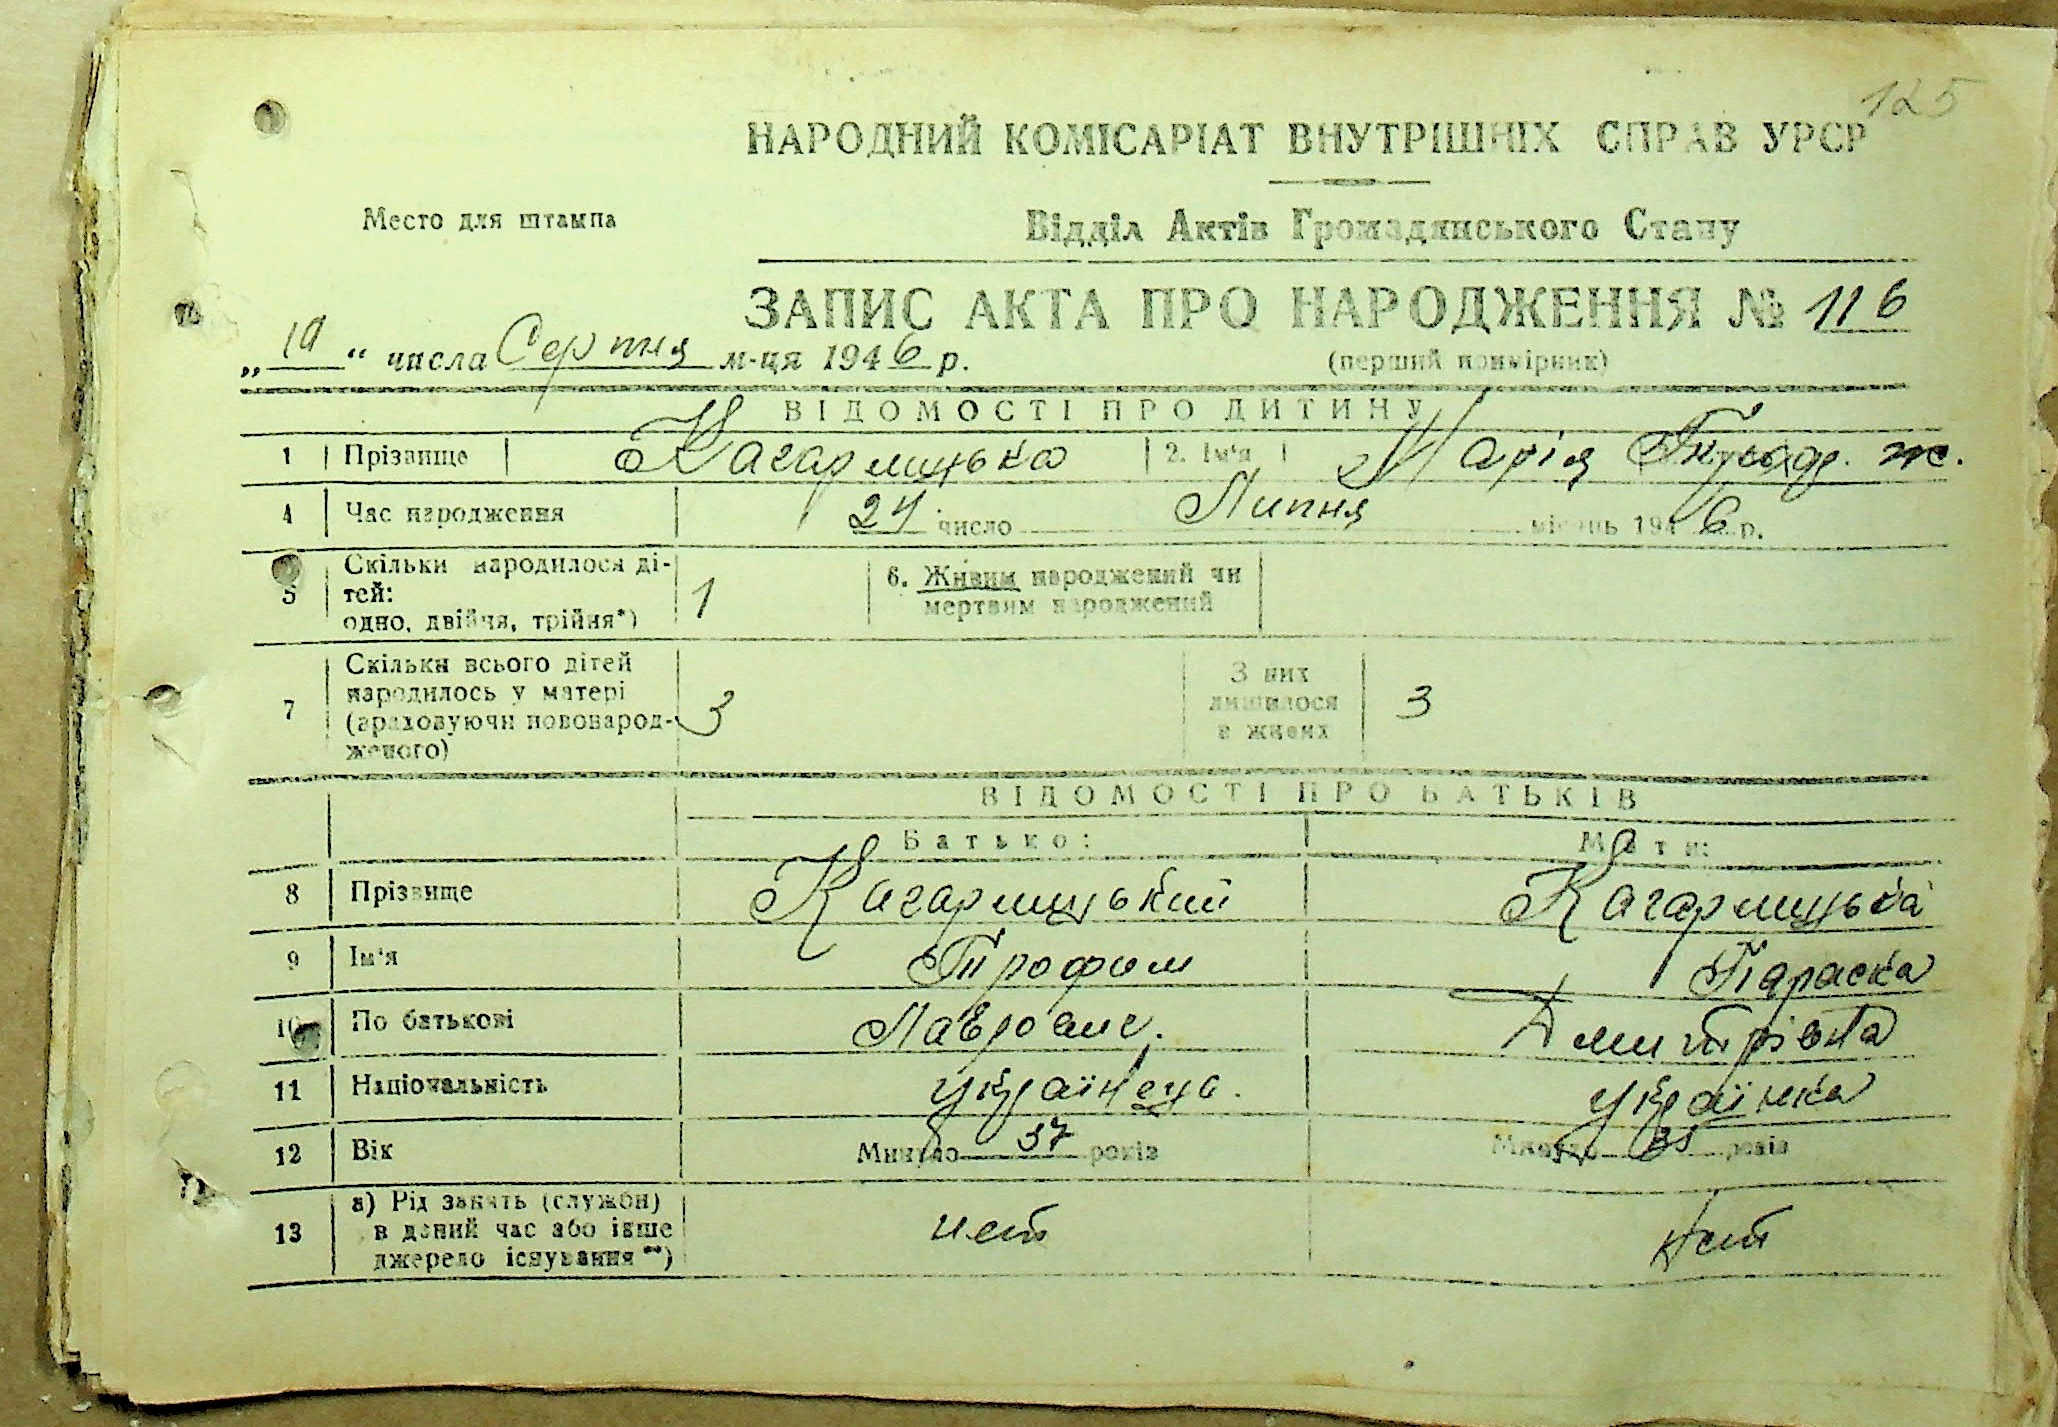 125
НАРОДНИЙ КОМІСАРІАТ ВНУТРІШНІХ СПРАВ УРСР
Место для штампа
Відділ Актів Громадянського Стану
ЗАПИС АКТА ПРО НАРОДЖЕННЯ № 116
„10“ числа Серпня м-ця 1946 р.
(перший примірник)
ВІДОМОСТІ ПРО ДИТИНУ
1 Прізвище Кагарлицька 2. Ім'я Марія ж.
4 Час народження 24 число Липня місяць 1946 р.
5 Скільки народилося ді-
тей:
одно, двійня, трійня*) 1
6. Живим народжений чи
мертвим народжений
7 Скільки всього дітей
народилось у матері
(враховуючи новонарод-
женого) 3
З них
лишилося
в живих 3
ВІДОМОСТІ ПРО БАТЬКІВ
Батько: Мати:
8 Прізвище Кагарлицький Кагарлицька
9 Ім'я Трофим Параска
10 По батькові Лаврович. Дмитрівна
11 Національність Українець. Українка
12 Вік Минуло 37 років Минуло 35 років
13 а) Рід занять (служби)
в даний час або інше
джерело існування **) нет нет